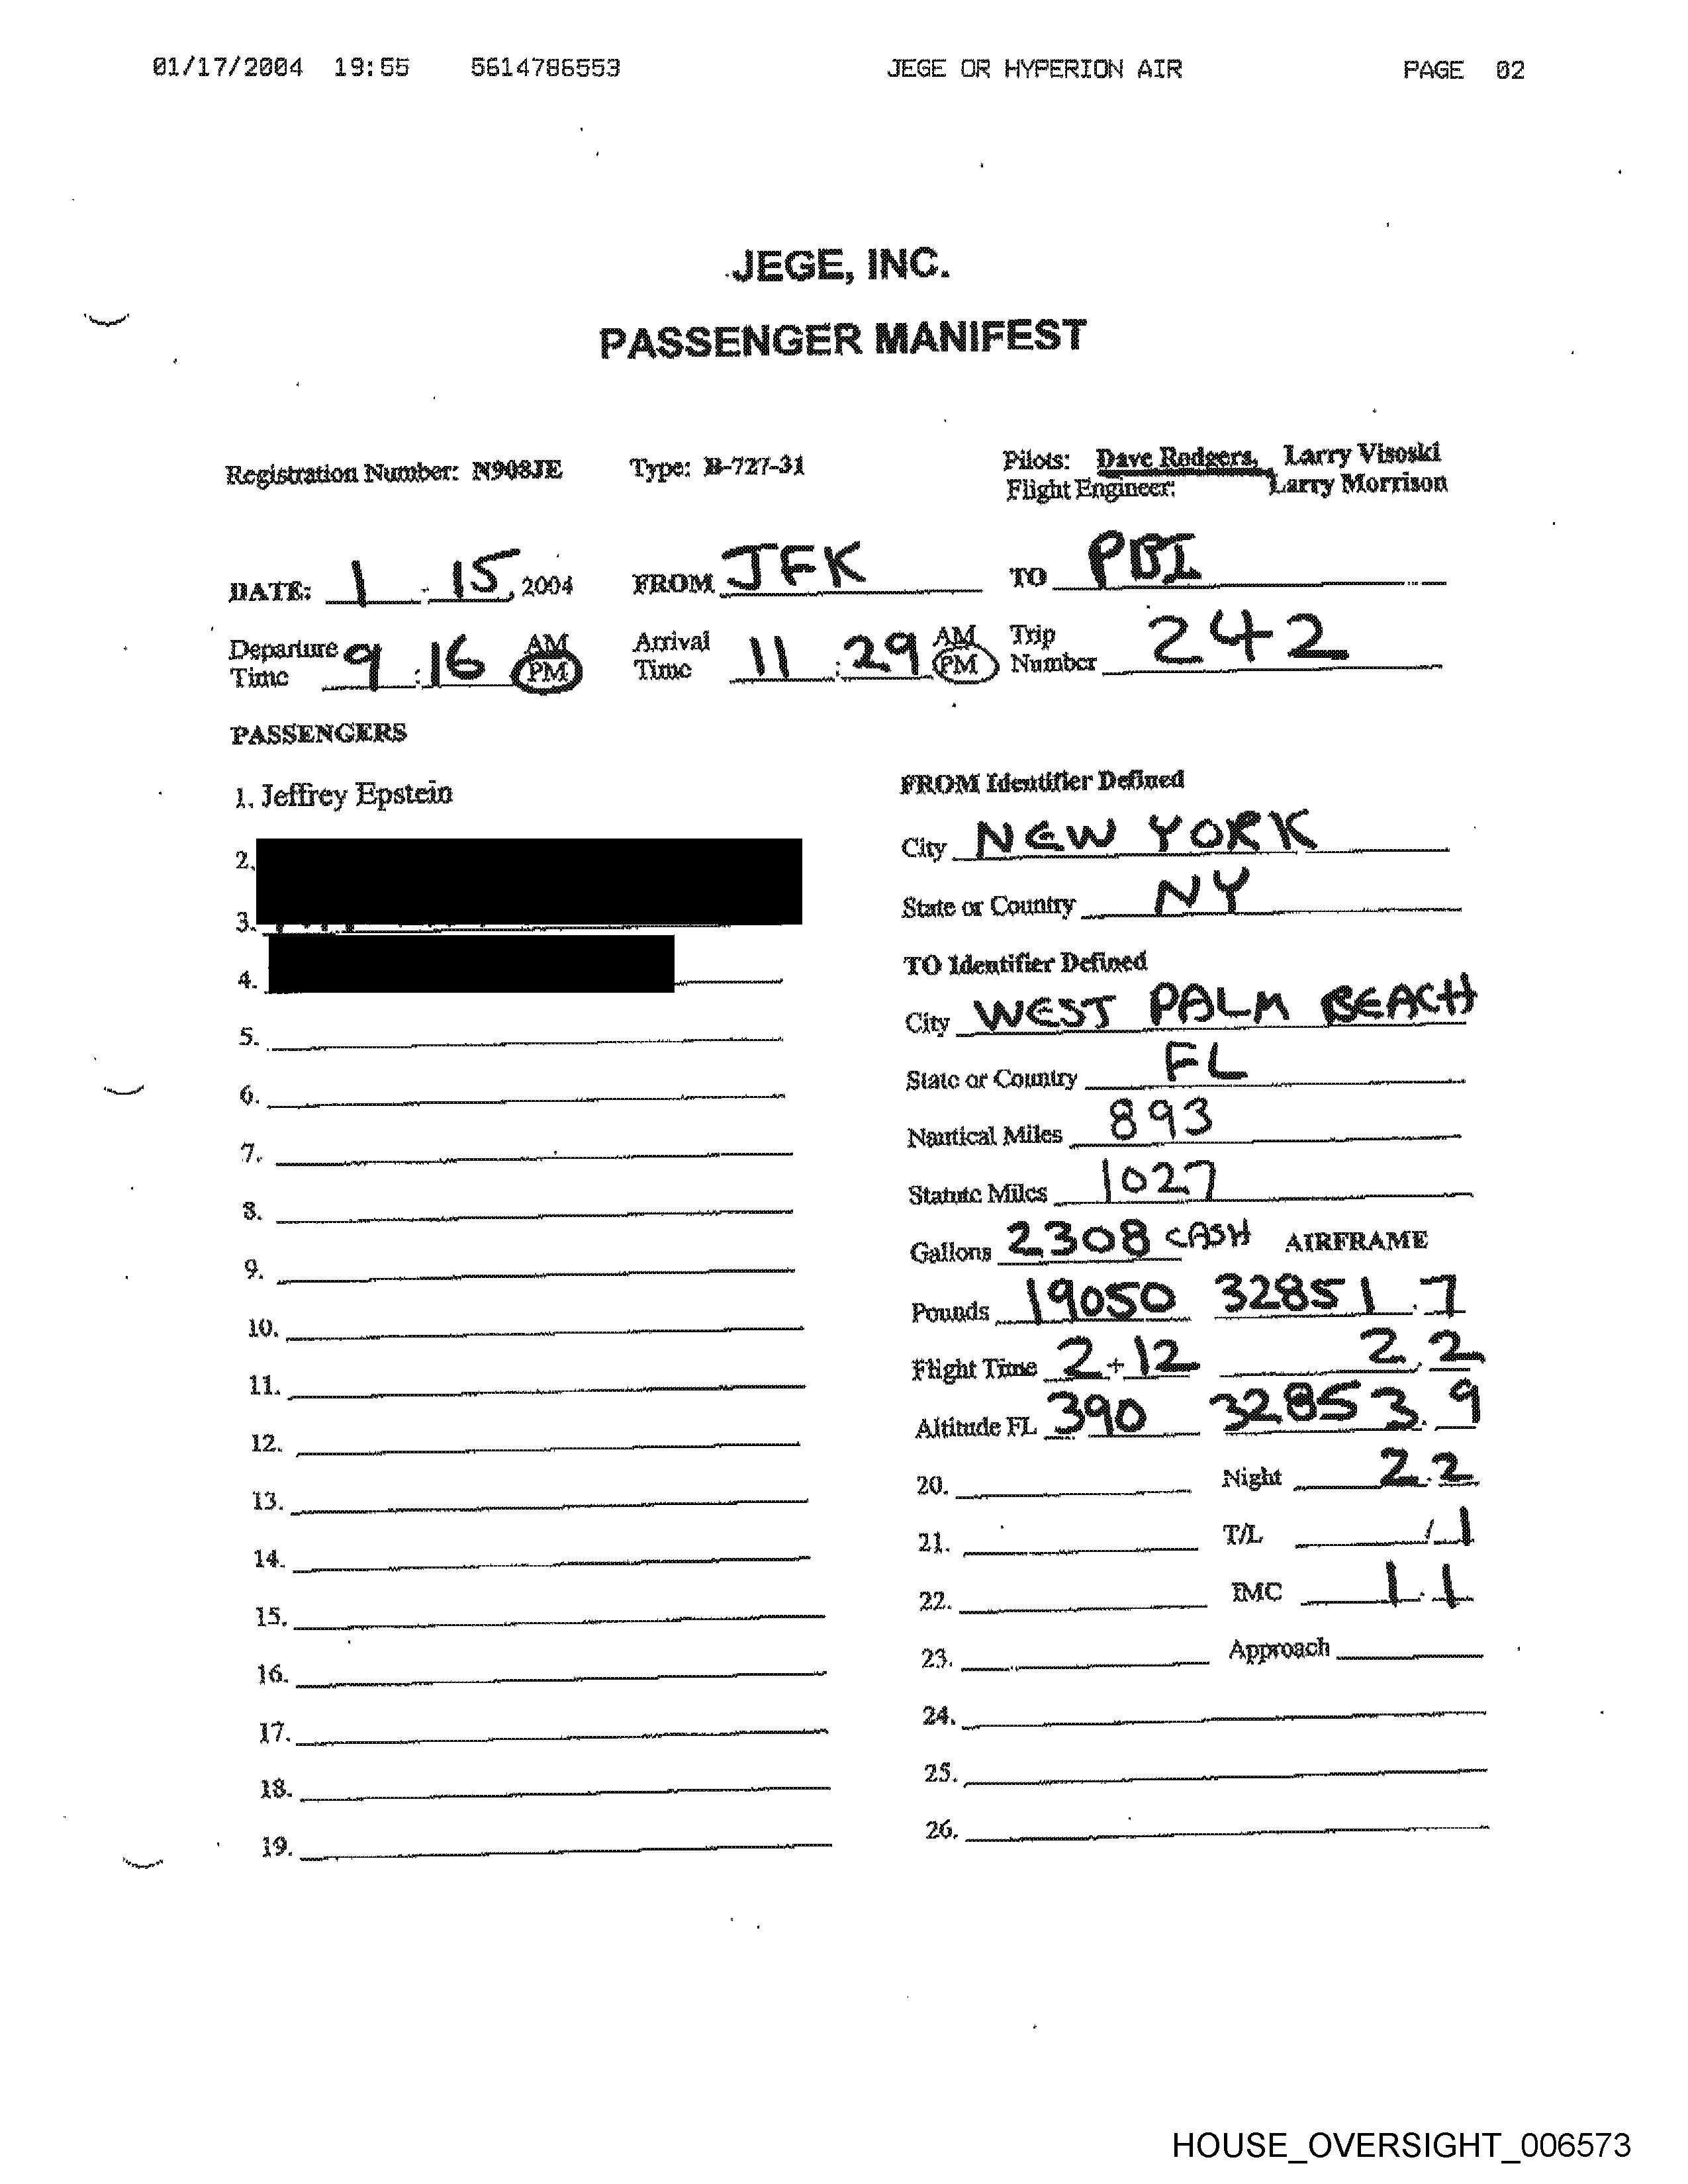 01/17/2004 19:55 5614786553 JEGE OR HYPERION AIR PAGE 02
JEGE, INC.
PASSENGER MANIFEST
Registration Number: N908JE Type: B-727-31 Pilots: Dave Rodgers, Larry Visoski
Flight Engineer: Larry Morrison
DATE: 1 - 15, 2004 FROM JFK TO PBI
Departure Time 9:16 AM PM Arrival Time 11:29 AM PM Trip Number 242
PASSENGERS
1. Jeffrey Epstein
2.
3.
4.
5.
6.
7.
8.
9.
10.
11.
12.
13.
14.
15.
16.
17.
18.
19.
FROM Identifier Defined
City NEW YORK
State or Country NY
TO Identifier Defined
City WEST PALM BEACH
State or Country FL
Nautical Miles 893
Statute Miles 1027
Gallons 2308 CASH AIRFRAME
Pounds 19050 32851.7
Flight Time 2+12 2.2
Altitude FL 390 32853.9
20. Night 2.2
21. T/L / 1
22. IMC 1.1
23. Approach
24.
25.
26.
HOUSE_OVERSIGHT_006573